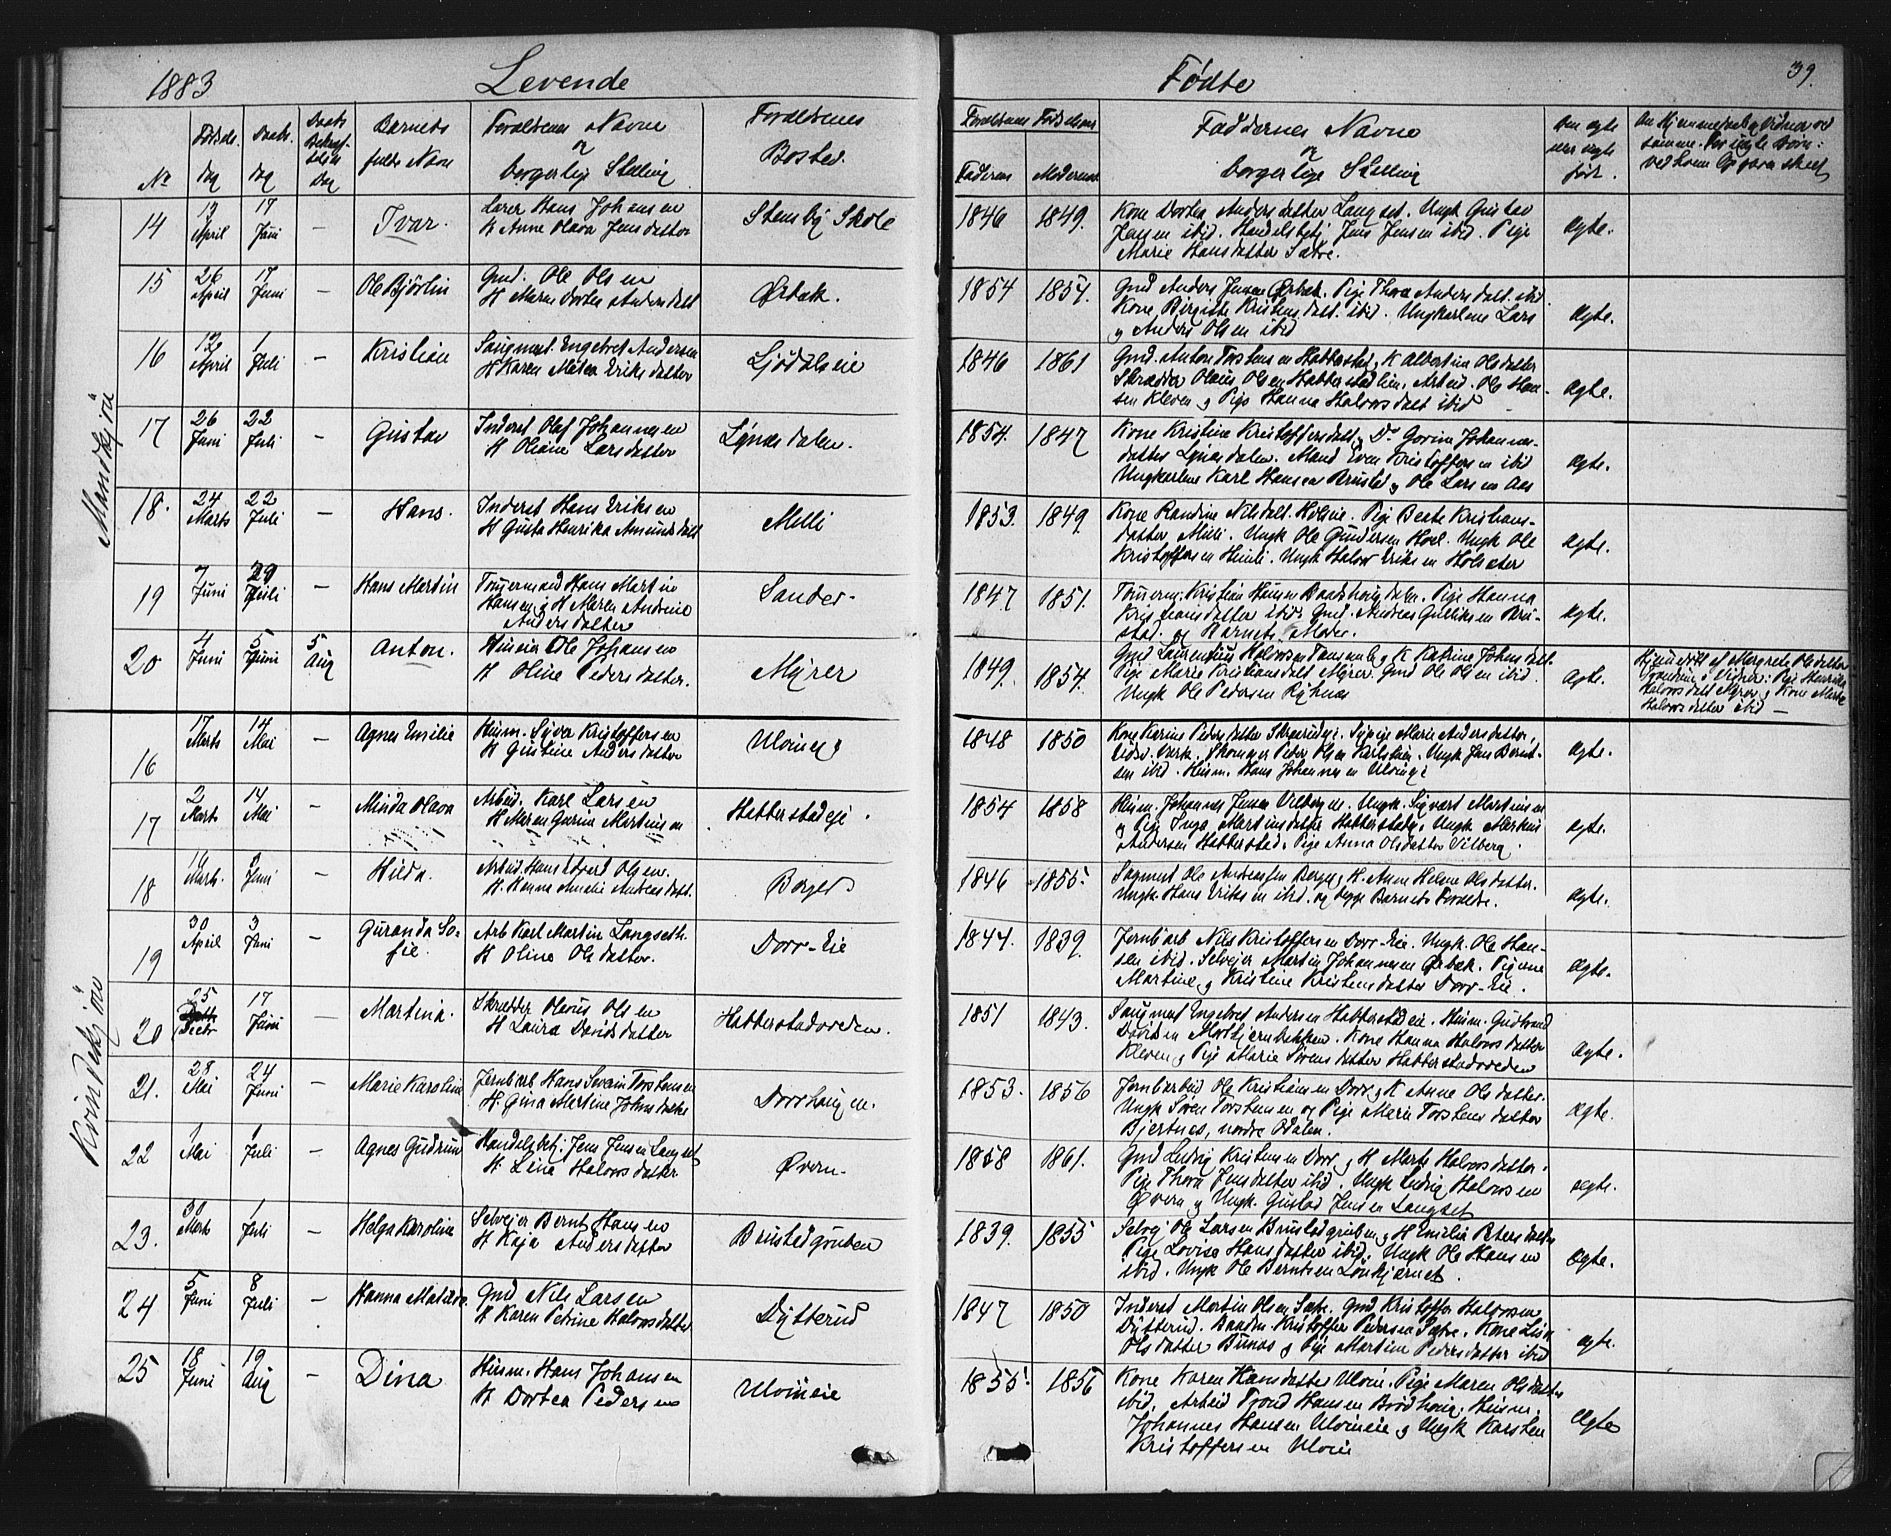 1883 Levende Fødte 39.
No
Fødsels dag
Daabs dag
Daabs Bekræftelses Dag
Barnets fulde Navn
Forældrenes Navne og borgerlige Stilling
Forældrenes Bosted.
Forældrenes Fødselsaar
Faderens Moderens
Faddernes Navne og borgerlige Stilling
Om ægte eller uægte født.
Mandkjøn
14 12 April 17 Juni - Ivar.
Lærer Hans Johansen
H Anne Olava Jensdatter
Stensby Skole
1846 1849.
Kone Dortea Andersdatter Langset. Ungk Gustav
Jensen ibid. Handelsbetj Jens Jensen ibid. Pige
Marie Hansdatter Sætre.
ægte.
15 26 April 17 Juni - Ole Bjørlin
Gmd. Ole Olsen
H Maren Dortea Andersdatt
Ørbæk.
1854 1854.
Gmd Anders Jensen Ørbæk. Pige Thora Andersdatt. ibid.
Kone Birgitte Kristensdatt. ibid. Ungkarlene Lars
og Anders Olsen ibid
ægte.
16 12 April 1 Juli - Kristian
Saugmest. Engebret Andersen
H Karen Eriksdatter
Ljødalseie
1846 1861
Gmd. Anton Torstensen Habberstad, K Albertine Olsdatter
Skrædder Olaus Olsen Habberstadlien. Arbeid. Ole Han-
sen Kleven og Pige Hanna Halvorsdatt ibid
ægte.
17 26 Juni 22 Juli - Gustav
Inderst Olaf Johannesen
H Oliane Larsdatter
Lynæsdalen.
1854. 1847
Kone Kristine Kristoffersdatt, Do Gorine Johannes-
datter Lynæsdalen. Mand Even Kristoffersen ibid
Ungkarlene Karl Hansen Brustad og Ole Larsen Aas
ægte.
18. 24 Marts 22 Juli - Hans.
Inderst Hans Eriksen
H Gusta Henrika Amundsdatt
Milli
1853. 1849
Kone Randine Nilsdatt. Holsæie. Pige Beate Kristians-
datter Milli. Ungk Ole Gundersen Hoel. Ungk Ole
Kristoffersen Himli. Ungk Halvor Eriksen Holsæter
ægte.
19 7 Juni 29 Juli - Hans Martin
Tømmermand Hans Martin
Hansen og H Maren Andrine
Andersdatter
Sander-
1847 1851.
Tømerm. Kristian Hansen. Pige Hanna
Kristiansdatter ibid. Gmd. Andreas Gulliksen Bru-
stad. og Barnets Moder.
ægte.
20 4 Juni 5 Juni 5 Aug Anton.
Husm. Ole Johansen
H Oline Pedersdatter.
Myrer
1849. 1854.
Gmd Laurentius Halvorsen og K Katrine Johnsdatt.
Pige Marie Kristiansdatt Myrer. Gmd Ole Olsen ibid.
Ungk Ole Pedersen Ryhnæs
ægte.
Hjemmedøbt af Margrete Olsdatter
Vidner: Pige Henrikke
Halvorsdatt Myrer og Kone Marthe
Halvorsdatter ibid -
Kvindekjøn
16 17 Marts 14 Mai - Agnes Emilie
Husm. Syver Kristoffersen
H Gustine Andersdatter
Ulvineg
1848 1850
Kone Karine Pedersdatter. Pige Marie Andersdatter,
Eidsv. Værk. Skomager Peder Olsen Karlstuen. Ungk Jens Bernt-
sen ibid. Husm. Hans Johannesen Ulvineg
ægte.
17 2 Marts 14 Mai - Minda Olava
Arbeid. Karl Larsen
H Maren Gurine Martinsen
Habberstadeje.
1854 1858
Husm. Johannes Jensen Vilbergm. Ungk. Sigvart Martinsen
og Pige Inga Martinsdatter Habberstadej. Ungk Markus
Andersen Habberstad. Pige Anna Olsdatter Vilberg.
ægte.
18 Marts 3 Juni - Hilda.
Arbeid. Hans Olsen.
H. Hanna Amalie Andreasdatt.
Borger
1846 1855.
Sagmest Ole Andreassen Berger, H. Anne Helene Olsdatter.
Ungk. Hans Eriksen ibid. og begge Barnets Forældre.
ægte.
19 30 April 3 Juni - Guranda So-
fie.
Arb Karl Martin Langseth.
H Oline Olsdatter.
Dorr-Eie
1844. 1839.
Jernbarb Nils Kristoffersen Dorr-Eie. Ungk. Ole Han-
sen ibid. Selveier Martin Johannesen Ørbæk. Pigerne
Martine og Kristine Kristensdatter Dorr-Eie.
ægte.
20 25 Decbr 17 Juni - Martina.
Skrædder Olaus Olsen
H Laura Davidsdatter
Habberstadveden.
1851 1843.
Saugmest Engebret Andersen Habberstadeie. Husm. Gudbrand
Davidsen Mostjernbakken. Kone Hanna Halvorsdatter
Kleven og Pige Marie Sørensdatter Habberstadveden
ægte.
21. 28 Mai 24 Juni - Marie Karoline
Jernbarb Hans Severin Torstensen
H. Gina Martine Johnsdatter
Dorrhaugen.
1853. 1856
Jernbarbeid Ole Kristiansen Dorr og K Anne Olsdatter.
Ungk Soren Torstensen og Pige Maren Torstensdatter
Bjertnes, nordre Odalen.
ægte.
22 1 Mai 1 Juli - Agnes Gudrun
Handelsbetj. Jens Jensen Langset
H. Lina Halvorsdatter
Øvern-
1858 1861.
Gmd Ludvig Kristensen Dorr og H Marte Halvorsdatter.
Pige Thora Jensdatter ibid. Ungk Ludvig Halvorsen
Øvern og Ungk. Gustav Jensen Langset
ægte.
23. 30 Marts 1 Juli - Helga Karoline
Selveier Bernt Hansen
H Kaja Andersdatter
Brustadgruben
1839. 1855
Selvej Ole Larsen Brustadgruben og H Emilie Petersdatter
Pige Lovise Hansdatter ibid. Ungk Ole Hansen
ibid. Ungk Ole Berntsen Lønkjernet.
ægte.
24 5 Juni 8 Juli - Hanna Matilde.
Gmd Nils Larsen
H Karen Petrine Halvorsdatter
Dytterud
1847 1850
Inderst Martin Olsen Sætre. Gmd Kristoffer Halvorsen
Dytterud. Baadm. Kristoffer Pedersen Sætre. Kone Lisa
Olsdatter Bunæs og Pige Martine Pedersdatter ibid
ægte.
25 18 Juni 19 Aug - Dina
Husm. Hans Johansen
H Dortea Pedersen
Ulvineie
1855. 1856
Kone Karen Hansdatter Ulvin. Pige Maren Olsdatter
ibid. Arbeid Trond Hansen Brødhaug. Husm.
Johannes Hansen Ulvineie og Ungk Karsten
Kristoffersen Ulvin
Ægte